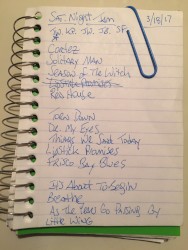 Sat. Night Jam
3/18/17
Cortez
Solitary Man
Season of The Witch
Lipstick Promises
Red House
Torn Down
Do My Eyes
Things We Said Today
Lipstick Promises
Frisco Bay Blues
It's About To Begin
Breathe
As The Years Go Passing By
Little Wing